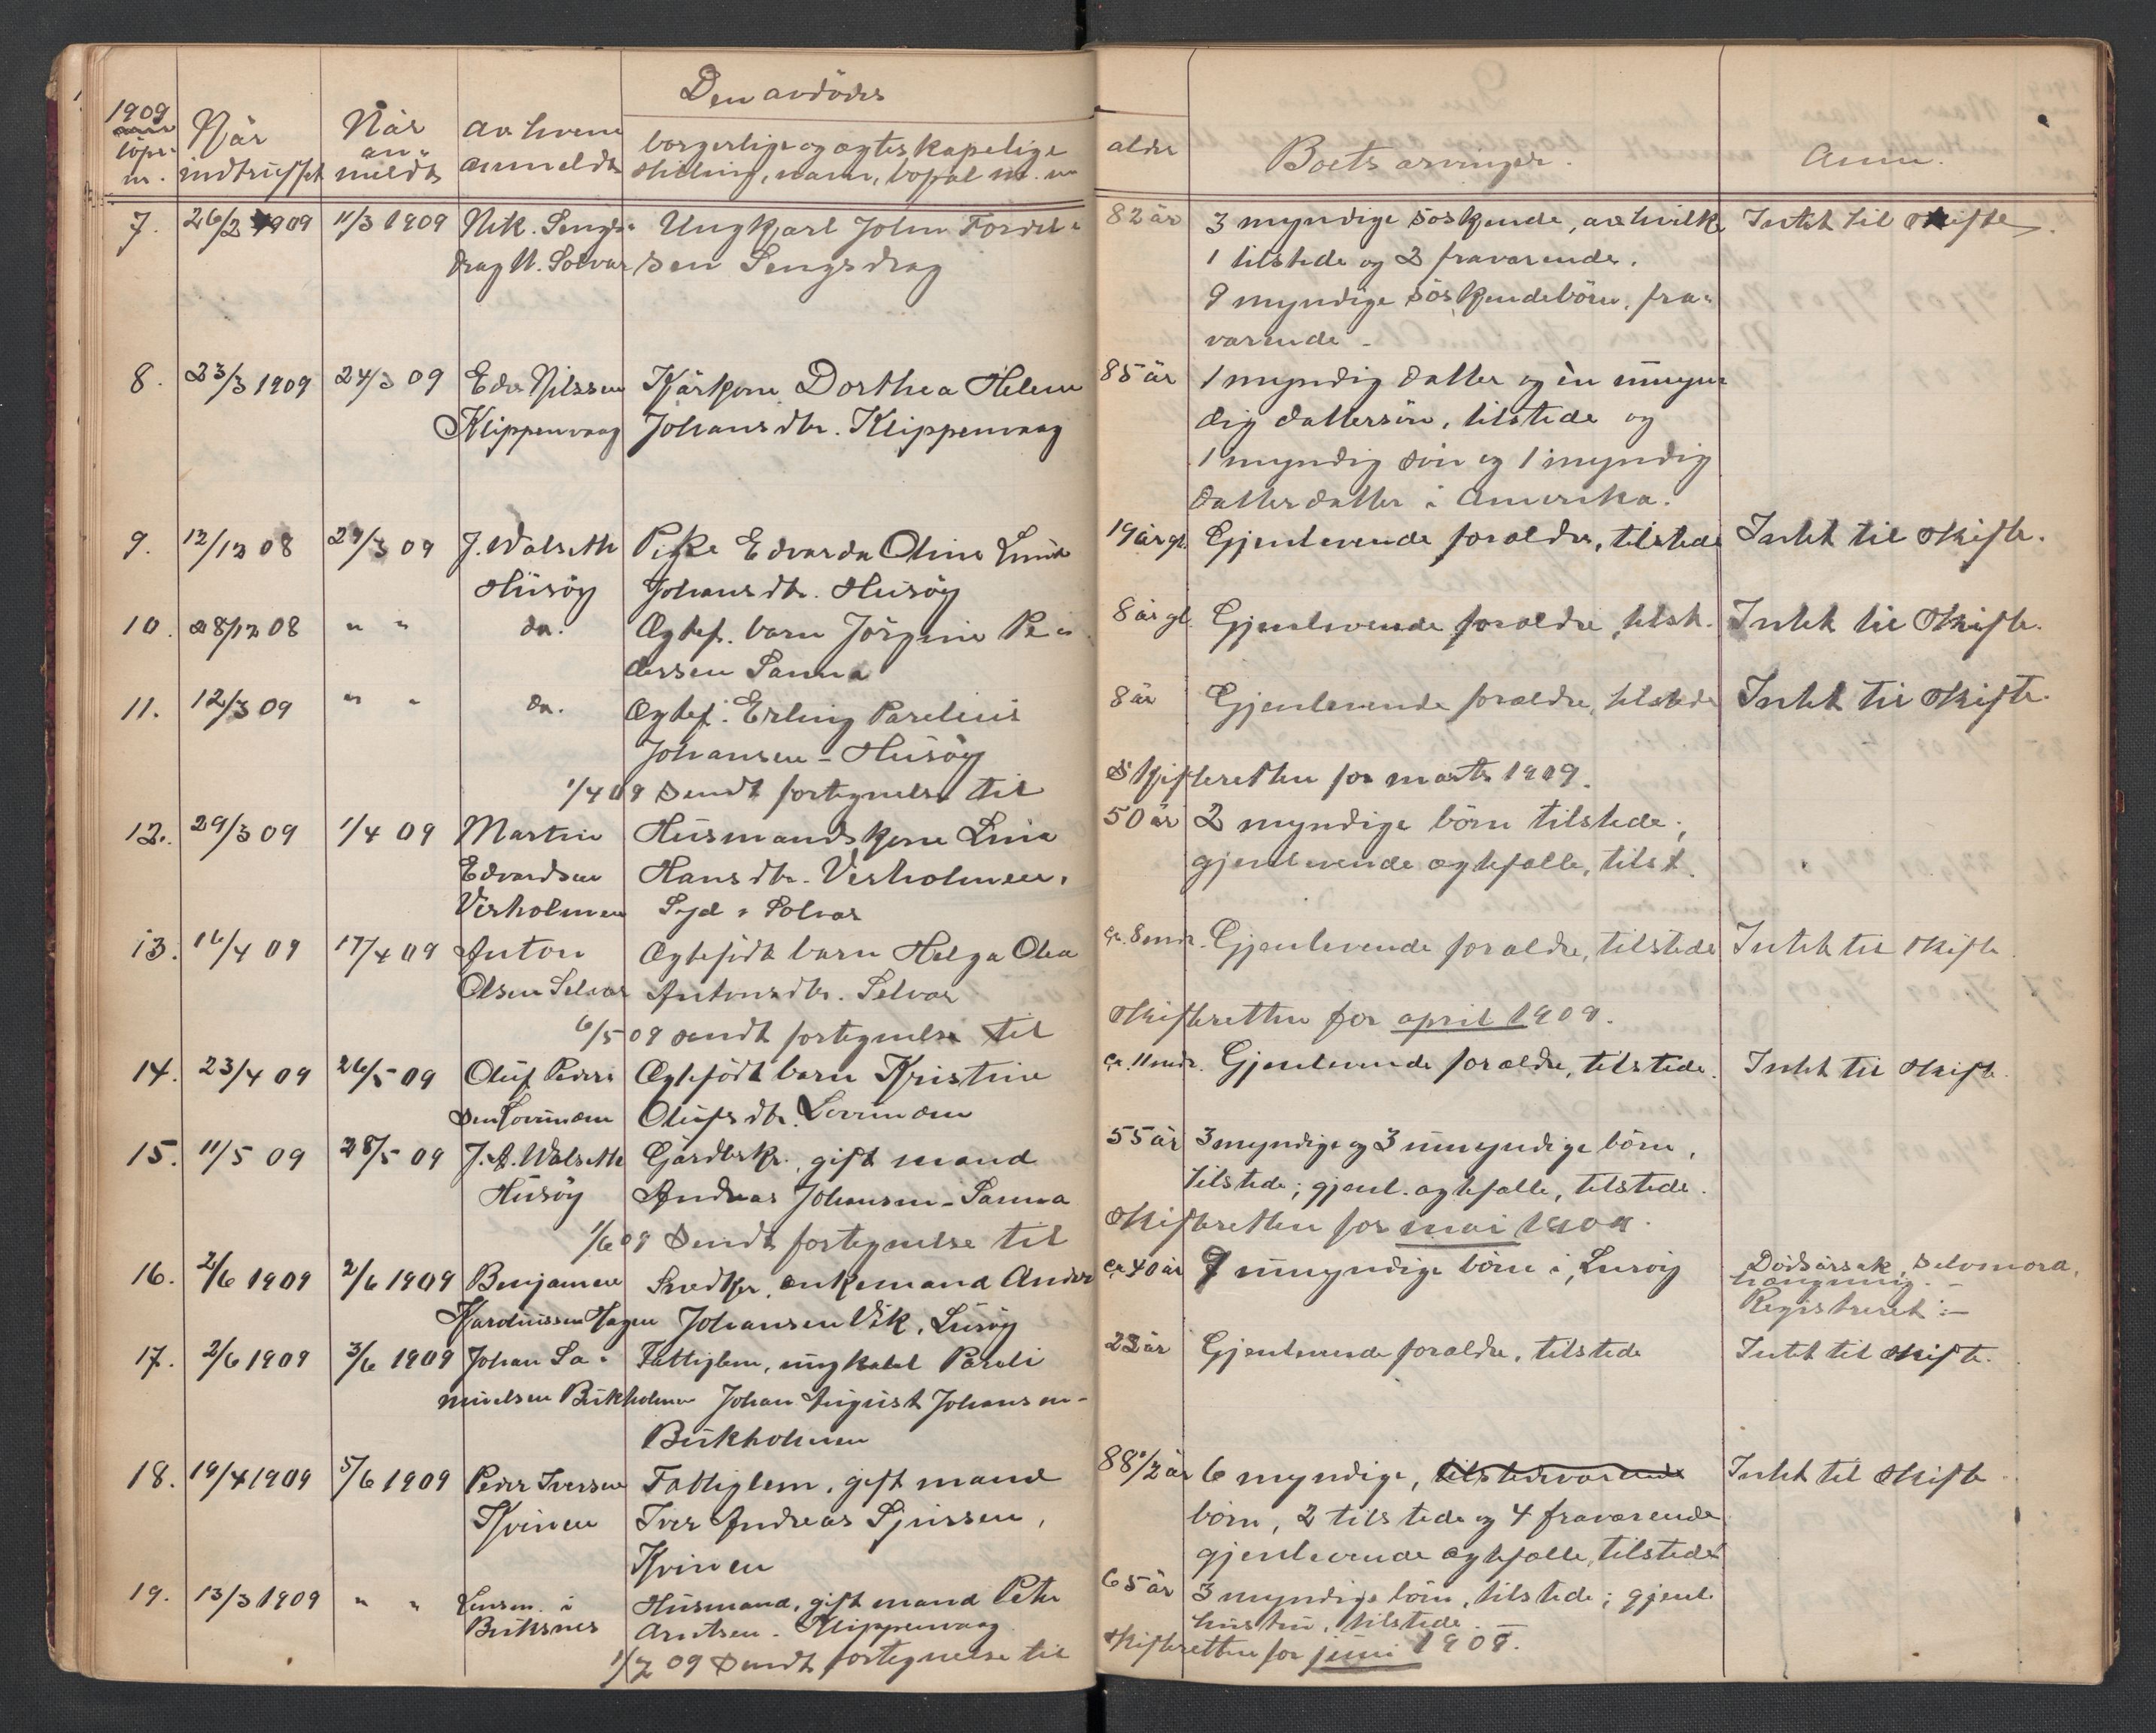 Den avdödes
1909
löpe-
nr.
Når
indtruffet
Når
an-
meldt
av hvem
anmeldt
borgerlige og ægteskapelige
stilling, navn, bopæl m. m
alder
Boets arvinger.
Anm.
7. 26/2 1909 11/3 1909 Nik. Sengs- Ungkarl John 82 år 3 myndige söskende, av hvilke Intet til skifte.
drag N. Solvær sen Sengsdrag 1 tilstede og 2 fraværende.
9 myndige söskendebörn, fra-
værende.
8. 23/3 1909 24/3 09 Edv. Nilssen Kårkone Dorthea Helene 85 år 1 myndig datter og èn umyn-
Klippenvaag Johansdtr. Klippenvaag dig dattersön, tilstede og
1 myndig sön og 1 myndig
datterdatter i Amerika.
9. 12/12 08 29/3 09 J. Walseth Pike Edvarda Oline 19 år gl. Gjenlevende forældre, tilstede Intet til skifte.
Husöy Johansdtr. Husöy
10. 28/12 08 " " do. Ægtef. barn Jörgine Pe- 8 år gl. Gjenlevende forældre, tilst. Intet til skifte.
dersen Sanna
11. 12/3 09 " " do. Ægtef. Erling Parelius 8 år Gjenlevende forældre, tilstede Intet til skifte.
Johansen - Husöy
1/4 09 sendt fortegnelse til Skifteretten for marts 1909.
12. 29/3 09 1/4 09 Martin Husmandskone Lina 50 år 2 myndige börn tilstede;
Edvardsen Hansdtr. Verholmen, gjenlevende ægtefælle, tilst.
Verholmen Syd - Solvær
13. 16/4 09 17/4 09 Anton Ægtefödt barn Helga Olea ca. 8 mdr. Gjenlevende forældre, tilstede Intet til skifte
Olsen Selvær Antonsdtr. Selvær
6/5 09 sendt fortegnelse til Skifteretten for april 1909.
14. 23/4 09 26/5 09 Oluf Peder- Ægtefödt barn Kristine ca. 11 mdr. Gjenlevende forældre, tilstede. Intet til skifte.
sen Lovunden Olufsdtr. Lovunden
15. 11/5 09 28/5 09 J. A. Walseth Gårdbr. , gift mand 55 år 3 myndige og 3 umyndige börn,
Husöy Andreas Johansen - Sanna tilstede; gjenl. ægtefælle, tilstede.
1/6 09 Sendt fortegnelse til Skifteretten for mai 1909.
16. 2/6 1909 2/6 1909 Benjamin Snedker, enkemand Ander ca. 40 år 7 umyndige börn i Luröy Dödsårsak, selvmord,
hængning. -
Hagen Johansen Vik, Luröy Registreret: -
17. 2/6 1909 3/6 1909 Johan Sa- Fattiglem, ungkarl Pareli 23 år Gjenlevende forældre, tilstede Intet til skifte.
muelsen Burkholmen Johan August Johansen -
Burkholmen
18. 19/4 1909 5/6 1909 Peder Iversen Fattiglem, gift mand 88 1/2 år 6 myndige, tilstedeværende Intet til skifte
Kvinen Iver Andreas Sjursen, börn, 2 tilstede og 4 fraværende
Kvinen gjenlevende ægtefælle, tilstede
19. 13/3 1909 " " Lensm. i Husmand, gift mand Peter 65 år 3 myndige börn, tilstede; gjenl.
Buksnes Arntsen - Klippenvaag hustru, tilstede.
1/7 09 Sendt fortegnelse til Skifteretten for juni 1909.